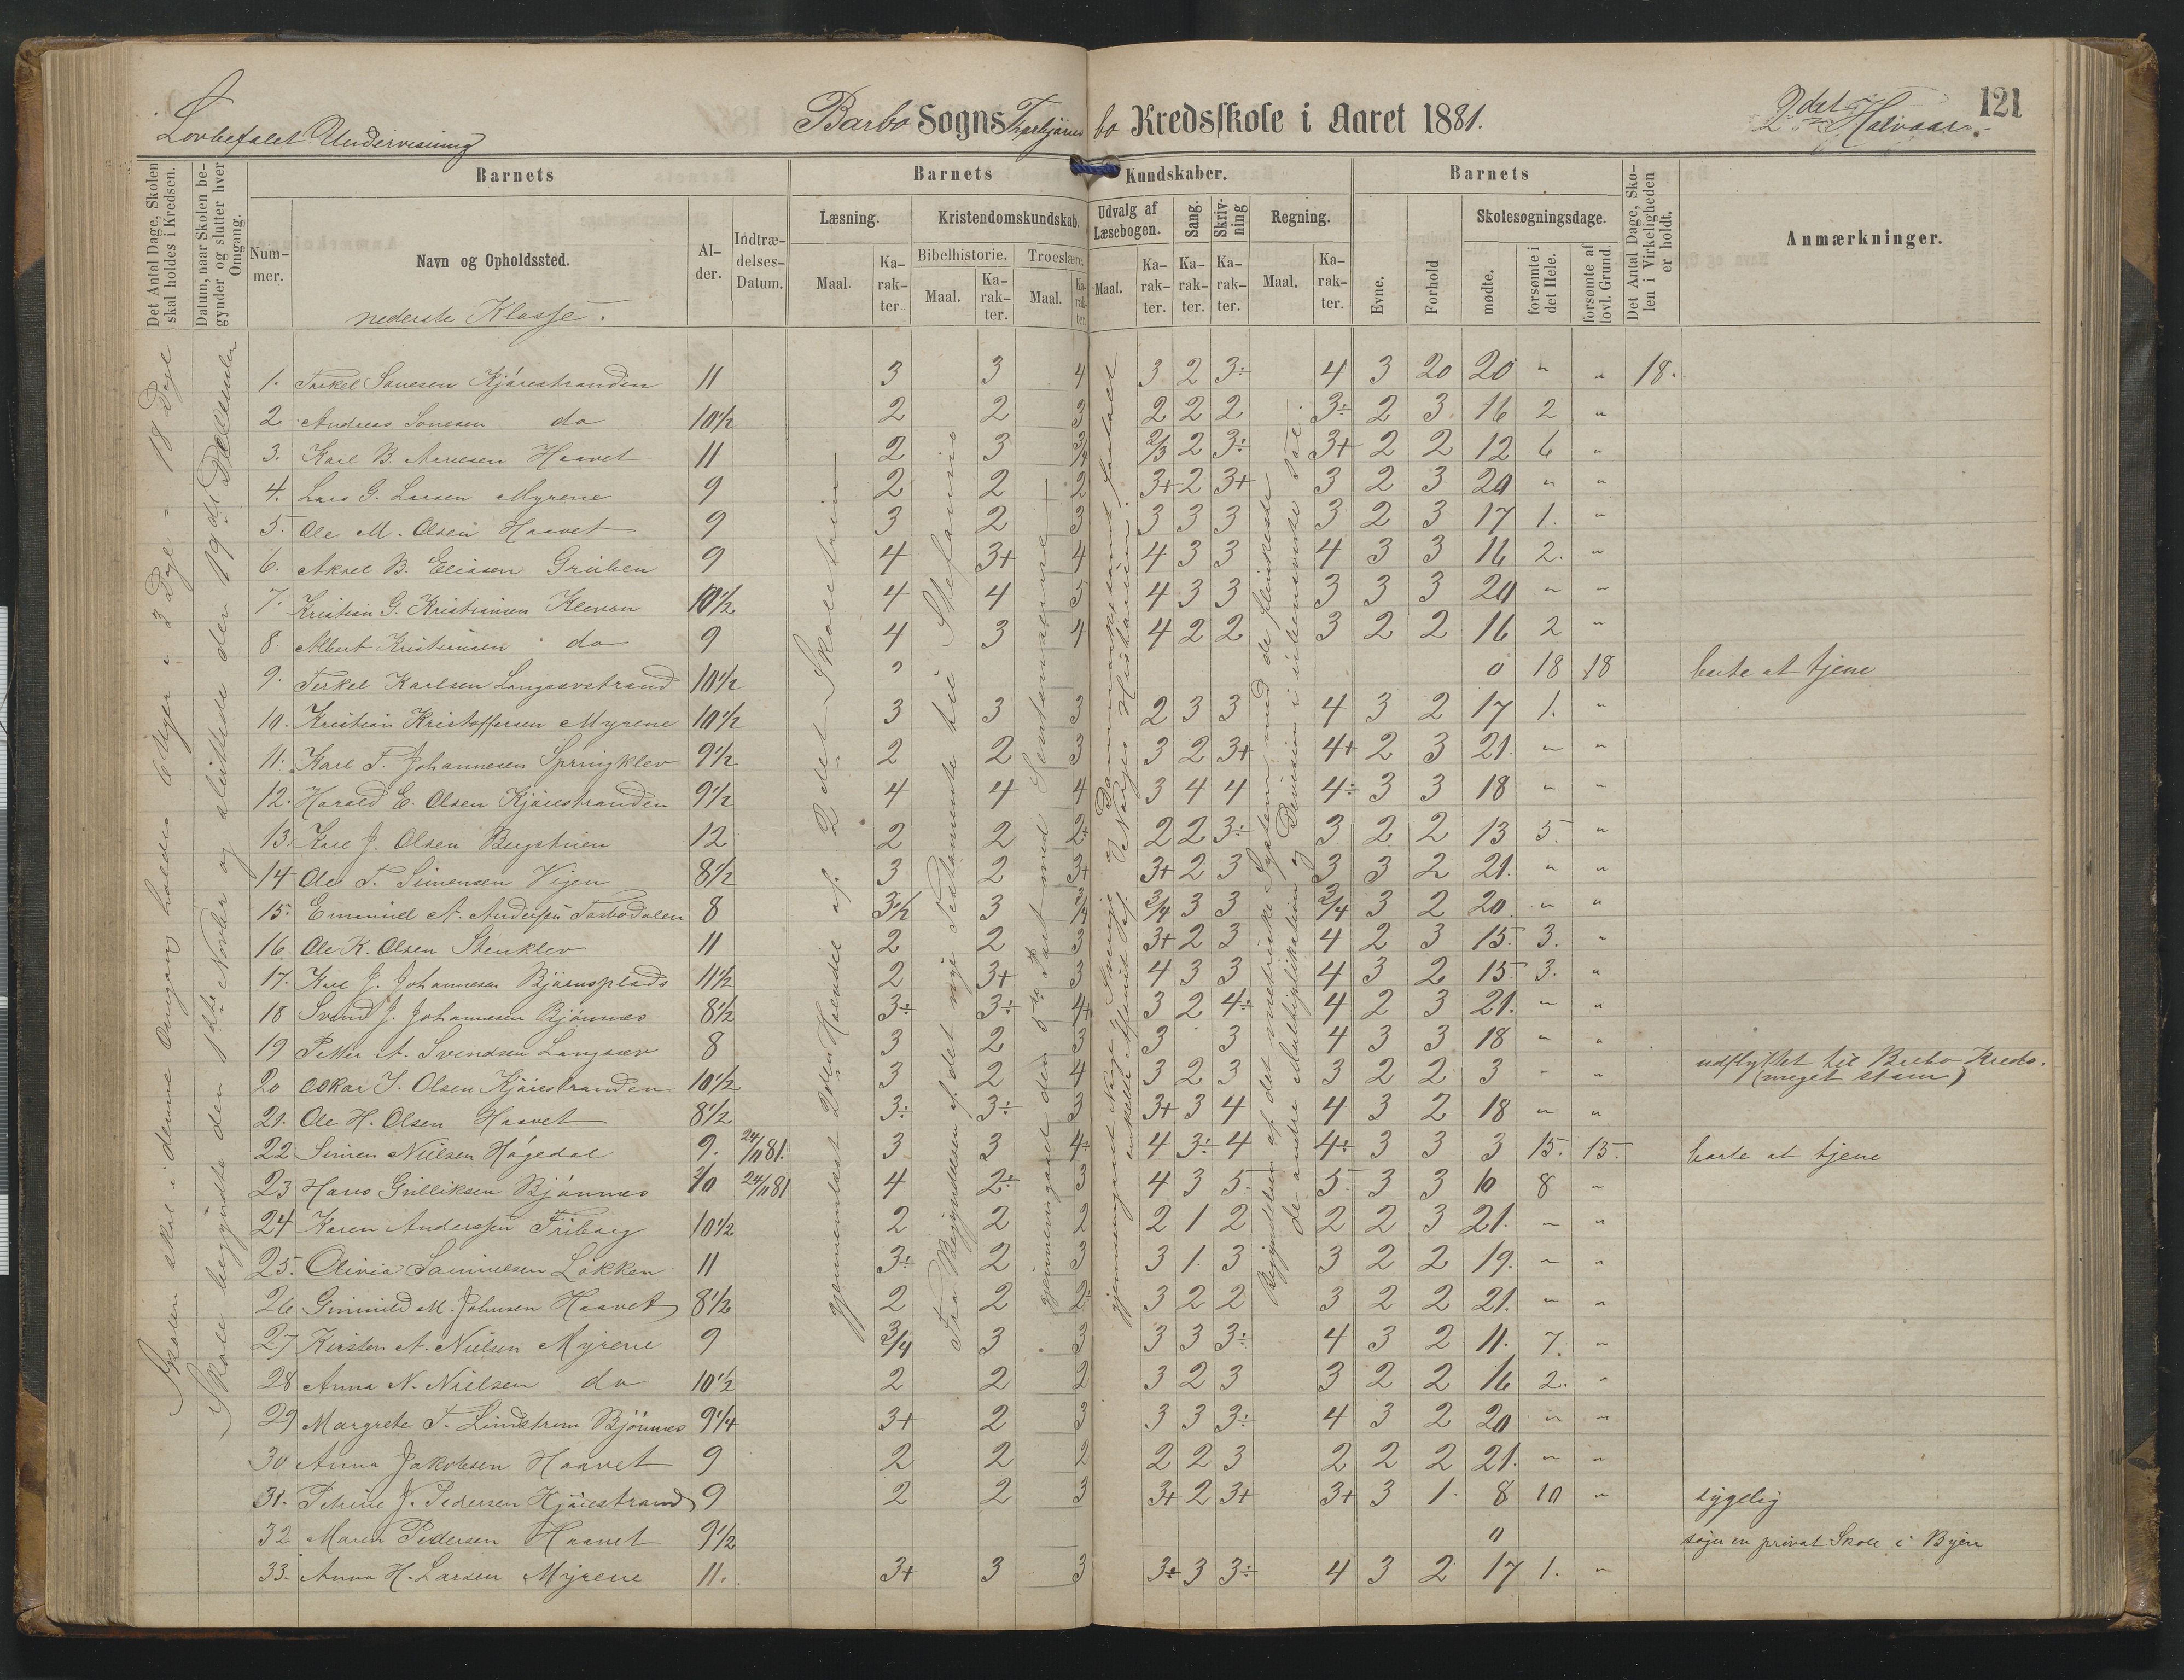 Lovbefalet Undervisning
Barbo Sogns Torbjørnsbo Kredsskole i Aaret 1881.
2det Halvaar.
121
Det Antal Dage, Skolen skal holdes i Kredsen.
Datum, naar Skolen begynder og slutter hver Omgang.
Barnets
Nummer.
Navn og Opholdssted.
Alder.
Indtrædelses-Datum.
Barnets Kundskaber.
Læsning.
Maal.
Karakter
Kristendomskundskab.
Bibelhistorie.
Maal.
Karakter.
Troeslære.
Maal.
Karakter.
Udvalg af Læsebogen.
Maal.
Karakter.
Sang.
Karakter.
Skrivning
Karakter.
Regning.
Maal.
Karakter.
Barnets
Evne.
Forhold
Skolesøgningsdage.
mødte.
forsømte i det Hele.
forsømte af lovl. Grund.
Det Antal Dage, Skolen i Virkeligheden er holdt.
Anmærkninger.
nederste Klasse.
Skolen skal i denne Omgang holdes 6 Uger à 3 Dage = 18 Dage
Skole begyndte den 1ste Novbr og sluttede den 19de December
gjennemlæst 2den Halvdel af 2det Skoletrin
Fra Begyndelsen af det nye Testamente til Stefanus
gjennemgaaet den 5te Part med Sententserne
gjennemgaaet Norge, Sverige og Danmark samt
enkelte Afsnit af Norges Historien
Begyndelsen af det metriske System med de flinkeste
de andre Multiplikation og Division i ubenævnte Tal.
1. Torkel Sønesen Kjørestranden 11 3 3 4 3 2 3÷ 4 3 20 20 " " 18.
2. Andreas Sønesen do 10 1/2 2 2 3 2 2 2 3÷ 2 3 16 2 "
3. Karl B. Arnesen Haavet 11 2 3 3/4 2/3 2 3÷ 3+ 2 2 12 6 "
4. Lars G. Larsen Myrene 9 2 2 2 3+ 2 3+ 3 2 3 20 " "
5. Ole M. Olsen Haavet 9 3 2 3 3 3 3 3 2 3 17 1. "
6. Aksel B. Eliasen Gruben 9 4 3+ 4 4 3 3 4 3 3 16 2. "
7. Kristian G. Kristiansen Kleven 10 1/2 4 4 5 4 3 3 3 3 3 20 " "
8. Albert Kristiansen do 9 4 3 4 4 2 2 3 2 2 16 2 "
9. Terkel Karlsen Langsævstrand 10 1/2 0 18 18 borte at tjene
10. Kristian Kristoffersen Myrene 10 1/2 3 3 3 2 3 3 4 3 2 17 1. "
11. Karl T. Johannesen Springklev 9 1/2 2 2 3 3 2 3+ 4+ 2 3 21. " "
12. Harald E. Olsen Kjørestranden 9 1/2 4 4 4 3 4 4 4÷ 3 3 18 " "
13. Karl J. Olsen Bergstuen 12 2 2 2÷ 2 2 3÷ 3 2 2 13 5. "
14 Ole T. Simensen Vigen 8 1/2 3 2 3+ 3+ 2 3 3 3 2 21. " "
15. Emanuel A. Andersen 8 3 1/2 3 3/4 3/4 3 3 3/4 3 2 20. " "
16 Ole K. Olsen Stenklev 11 2 2 3 3+ 2 3 4 2 3 15. 3. "
17. Karl J. Johannesen Bjørnsplads 11 1/2 2 3+ 3 4 3 3 4 3 2 15. 3. "
18 Svend J. Johannesen Bjønnes 8 1/2 3÷ 3÷ 4+ 3 2 4÷ 4 2 3 21. " "
19 Petter A. Svendsen Langsæv 8 3 2 3 3 3 4 3 3 18 " "
20 Oskar J. Olsen Kjørestranden 10 1/2 3 2 4 3 2 3 3 2 2 3 " " udflyttet til Krebs. (meget )
21. Ole H. Olsen Haavet 8 1/2 3÷ 3÷ 3 3+ 3 4 4 3 2 18 " "
22 Simen Nielsen Høgedal 9. 24/11 81. 3 3 4÷ 4 3÷ 4 4÷ 3 3 3 15. 15. borte at tjene
23 Hans Gulliksen Bjønnes 10 24/11 81 4 2÷ 3 4 3 5. 5. 3 3 10 8 "
24 Karen Andersen Friberg 10 1/2 2 2 2 2 1 2 2 2 3 21. " "
25. Olivia Samuelsen Løkken 11 3÷ 2 3 3 1. 3 3 2 2 19. " "
26 Gunnild M. Johnsen Haavet 8 1/2 2 2 2÷ 3 2 2 3 2 2 21. " "
27 Kirsten A. Nielsen Myrene 9 3/4 3 3 3 3 3÷ 4 3 2 11. 7. "
28 Anna N. Nielsen do 10 1/2 2 2 2 3 2 3 3 2 2 16 2. "
29 Margrete T. Lindstrøm Bjønnes 9 1/4 3+ 2 3 3 3 3÷ 4 3 2 20 " "
30 Anna Jakobsen Haavet 9 2 2 2 2 2 3 2 2 2 21. " "
31. Petrine J. Pedersen Kjørestrand 9 2 2 3 3+ 2 3+ 3+ 3 1. 8 10 " sygelig
32 Maren Pedersen Haavet 9 1/2 0 søger en privat Skole i Byen
33. Anna H. Larsen Myrene 11. 3+ 3 3 3+ 3 3÷ 4 3 2 17 1. "